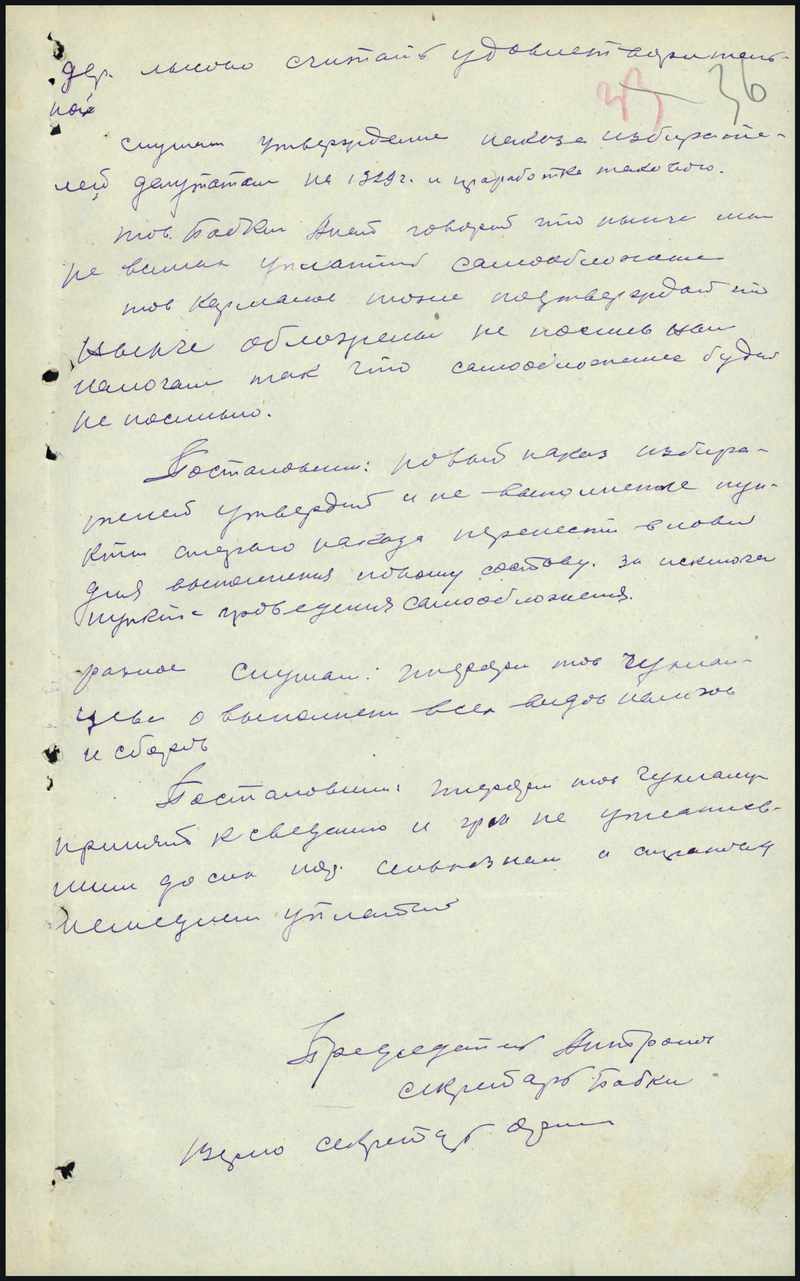 дер. лысово считать удовлетварител-
ной
33 36
слушали утверждение наказа избирате-
лей депутатам на 1929 г. и проработка такового.
тов. Бабкин говорит что нынче мы
не в силах уплатить самообложение
тов Карманов тоже подтверждает что
нынче обложены не посильным
налогам так что самообложение будет
не посильно.
Постановили: новый наказ избира-
телей утвердить и не выполненые пун-
кты старого наказа перенести в новый
для выполнения новому составу. за исключ
пункта проведения самообложения.
разное слушали: информ тов Чукман-
цева о выполнен всех видов налогов
и сборов
Постановили: информ тов Чукманц
принять к сведению и гр-н не уплатив-
ших до сих пор сельхозналог и страховку
немедленно уплатить
Председатель
секретарь Бабкин
Верно секретарь